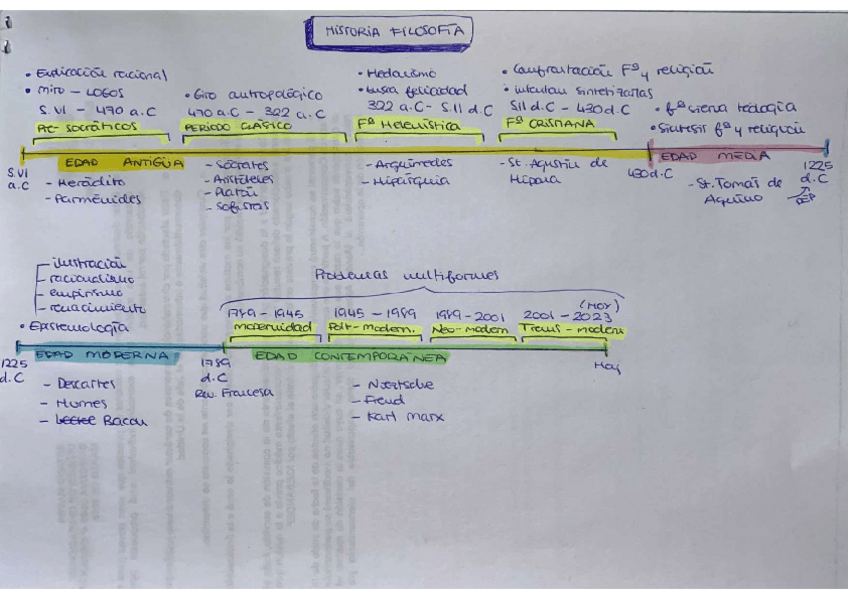 HISTORIA FILOSOFÍA
• Explicación racional
• mito - LOGOS
S.VI - 470 a.C
PRE SOCRÁTICOS
• Giro antropológico
470 a.C - 322 a.C
PERIODO CLÁSICO
• Hedonismo
• busca felicidad
322 a.C - S.II d.C
Fª Helenística
• Confrontación Fª y religión
• intentan sintetizarlas
SII d.C - 430d.C
Fª CRISTIANA
• fª sierva teología
• Síntesis fª y religión
S.VI a.C
EDAD ANTIGUA
- Heráclito
- Parménides
- Sócrates
- Aristóteles
- Platón
- Sofistas
- Arquímedes
- Hiparquia
- St. Agustín de
Hipona
430d.C
EDAD MEDIA
- St. Tomás de
Aquino
1225
d.C
- ilustración
- racionalismo
- empirismo
- renacimiento
• Epistemología
EDAD MODERNA
1225
d.C
- Descartes
- Humes
- Bacon
1789
d.C
Rev. Francesa
Problemas multiformes
1789 - 1945
modernidad
1945 - 1989
Post-modern.
1989 - 2001
Neo-modern
(HOY)
2001 - 2023
Trans-modern
EDAD CONTEMPORÁNEA
Hoy
- Nietzsche
- Freud
- Karl Marx